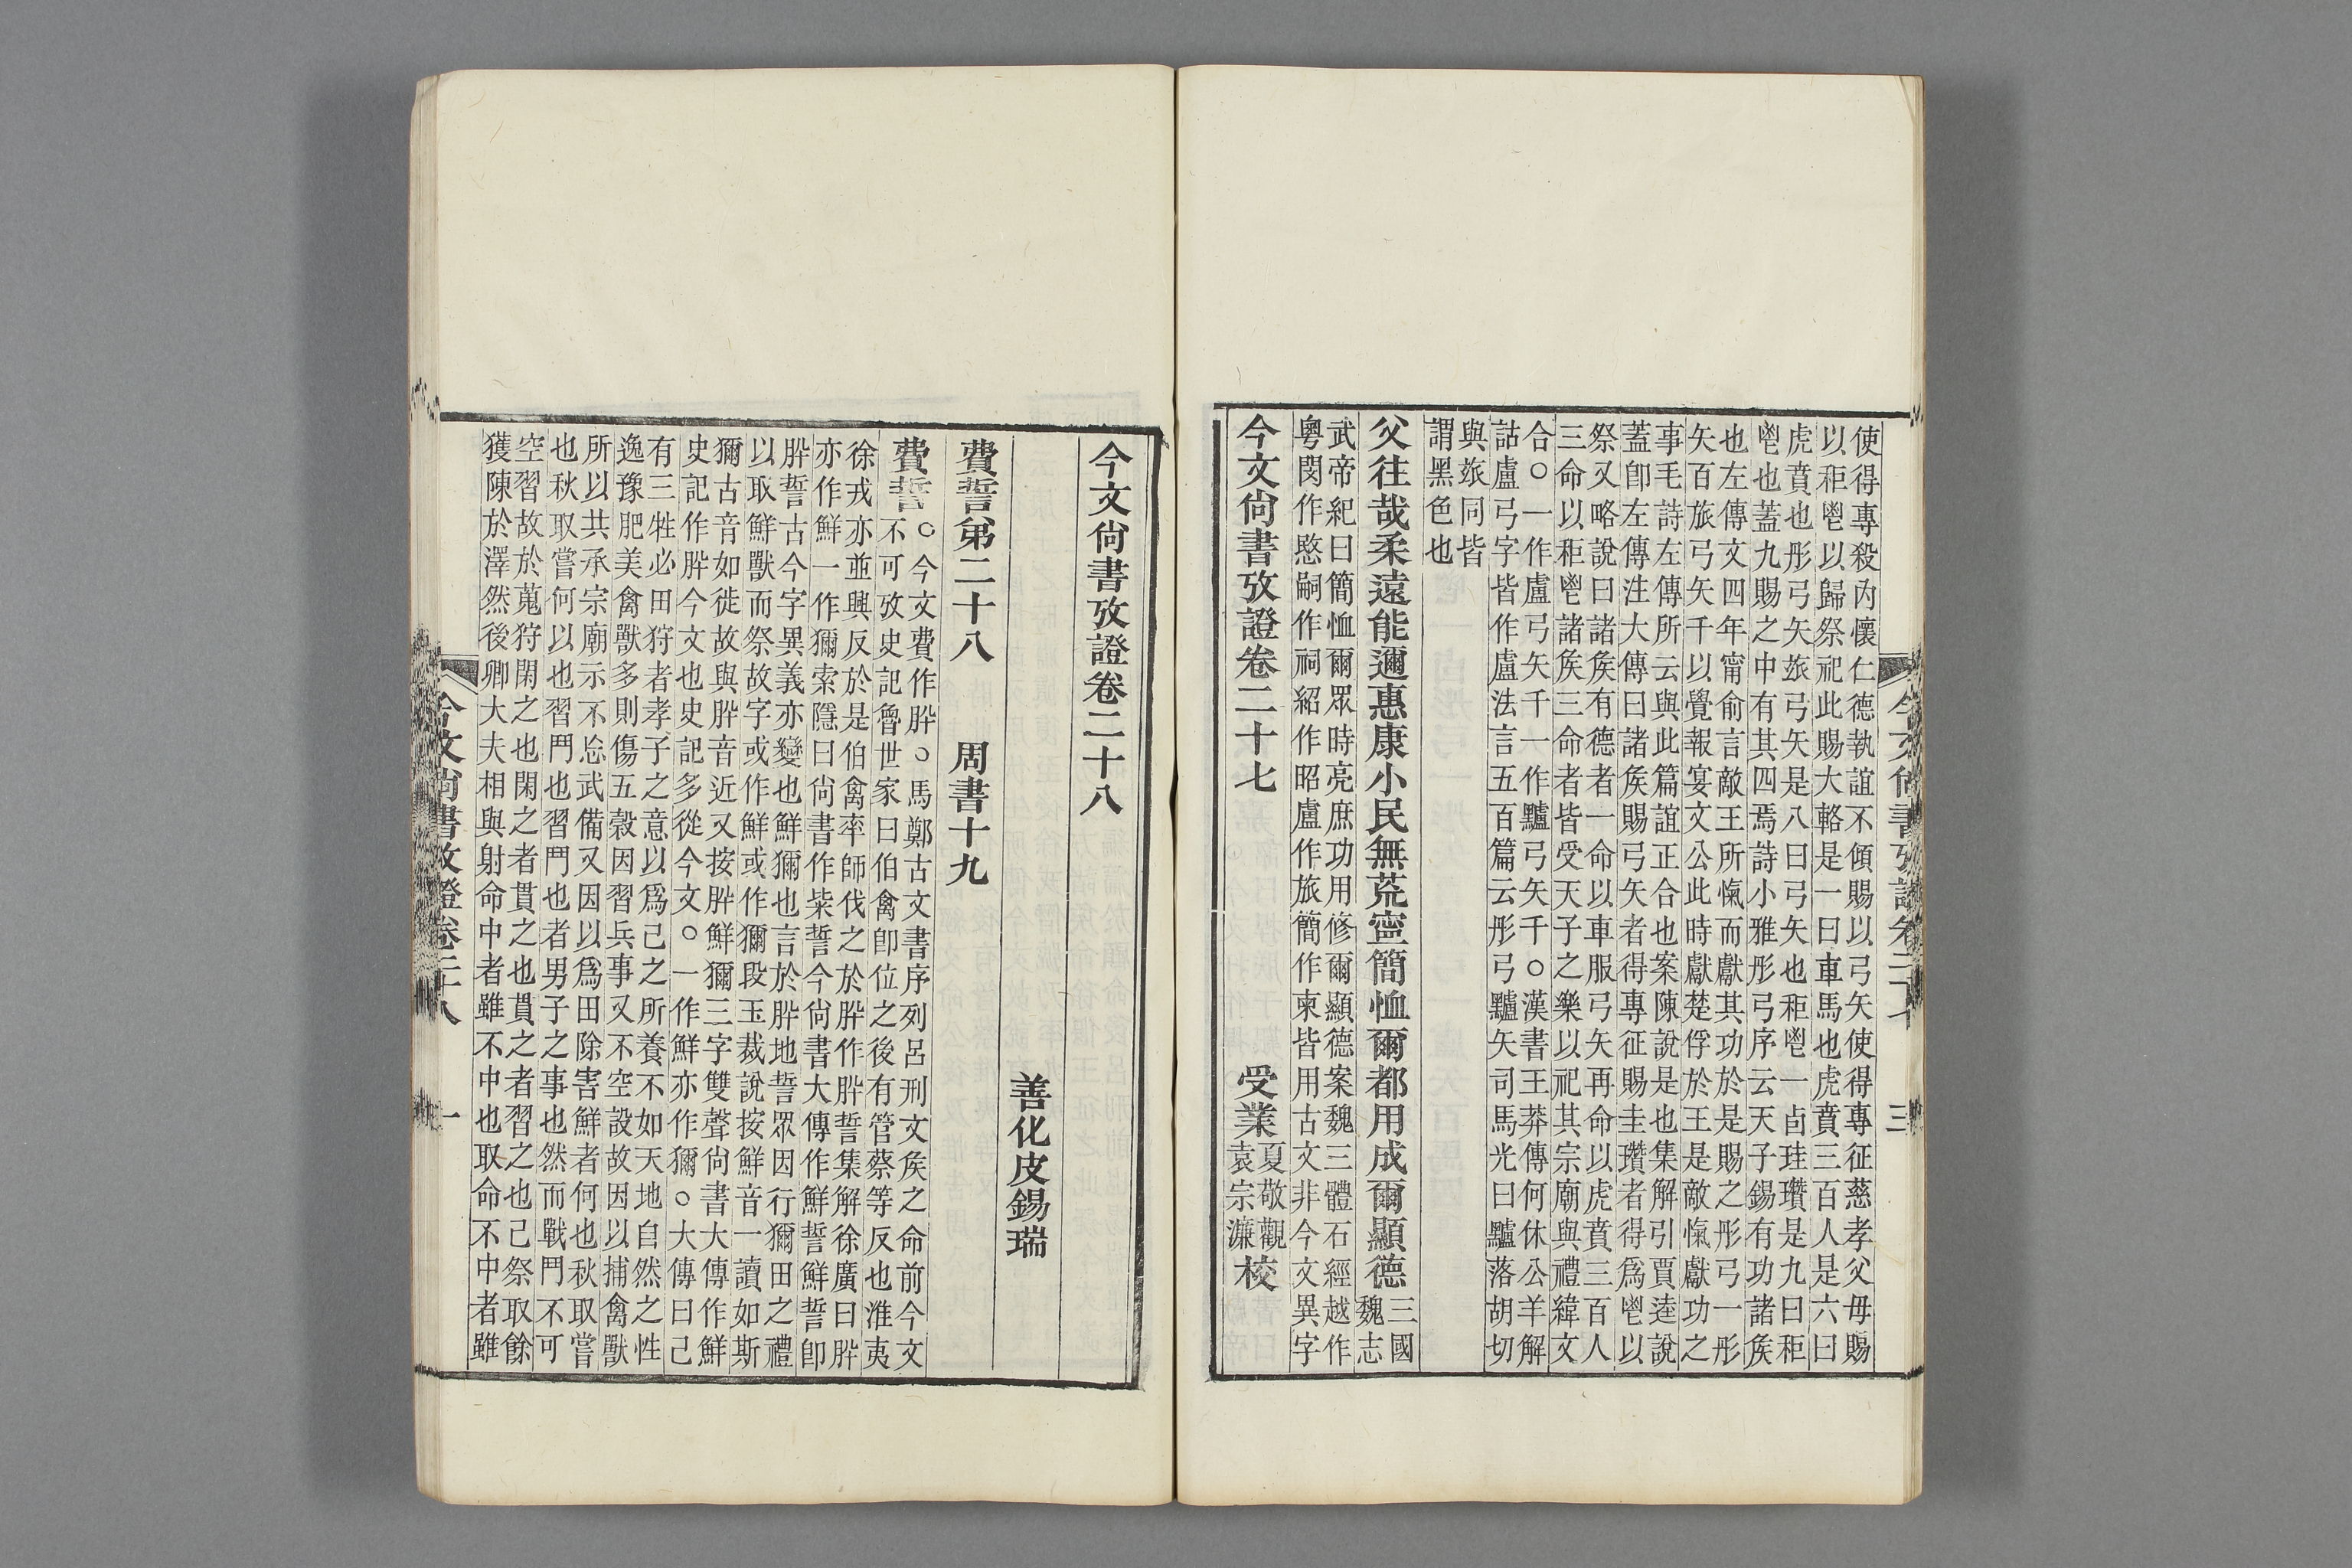 使得專殺內懷仁德執誼不傾賜以弓矢使得專征慈孝父母賜
以秬鬯以歸祭祀此賜大輅是一曰車馬也虎賁三百人是六曰
虎賁也彤弓矢玈弓矢是八曰弓矢也秬鬯一卣珪瓚是九曰秬
鬯也蓋九賜之中有其四焉詩小雅彤弓序云天子錫有功諸矦
也左傳文四年甯俞言敵王所愾而獻其功於是賜之彤弓一彤
矢百旅弓矢千以覺報宴文公此時獻楚俘於王是敵愾獻功之
事毛詩左傳所云與此篇誼正合也案陳說是也集解引賈逵說
蓋卽左傳注大傳曰諸矦賜弓矢者得專征賜圭瓚者得爲鬯以
祭又略說曰諸矦有德者一命以車服弓矢再命以虎賁三百人
三命以秬鬯諸矦三命者皆受天子之樂以祀其宗廟與禮緯文
合○一作盧弓矢千一作黸弓矢千○漢書王莽傳何休公羊解
詁盧弓字皆作盧法言五百篇云彤弓黸矢司馬光曰黸落胡切
與玈同皆
謂黑色也
父往哉柔遠能邇惠康小民無荒寍簡恤爾都用成爾顯德 三國
魏志
武帝紀曰簡恤爾眾時亮庶功用修爾顯德案魏三體石經越作
粵閔作愍嗣作祠紹作昭盧作旅簡作柬皆用古文非今文異字
今文尙書攷證卷二十七 受業 夏敬觀 袁宗濂 校
今文尙書攷證卷二十七 三
今文尙書攷證卷二十八
善化皮錫瑞
費誓弟二十八 周書十九
費誓 ○今文費作肸○馬鄭古文書序列呂刑文矦之命前今文
不可攷史記魯世家曰伯禽卽位之後有管蔡等反也淮夷
徐戎亦並興反於是伯禽率師伐之於肸作肸誓集解徐廣曰肸
亦作鮮一作獮索隱曰尙書作柴誓今尙書大傳作鮮誓鮮誓卽
肸誓古今字異義亦變也鮮獮也言於肸地誓眾因行獮田之禮
以取鮮獸而祭故字或作鮮或作獮段玉裁說按鮮音一讀如斯
獮古音如徙故與肸音近又按肸鮮獮三字雙聲尙書大傳作鮮
史記作肸今文也史記多從今文○一作鮮亦作獮○大傳曰己
有三牲必田狩者孝子之意以爲己之所養不如天地自然之性
逸豫肥美禽獸多則傷五穀因習兵事又不空設故因以捕禽獸
所以共承宗廟示不忘武備又因以爲田除害鮮者何也秋取嘗
也秋取嘗何以也習鬥也習鬥也者男子之事也然而戰鬥不可
空習故於蒐狩閑之也閑之者貫之也貫之者習之也己祭取餘
獲陳於澤然後卿大夫相與射命中者雖不中也取命不中者雖
今文尙書攷證卷二十八 一